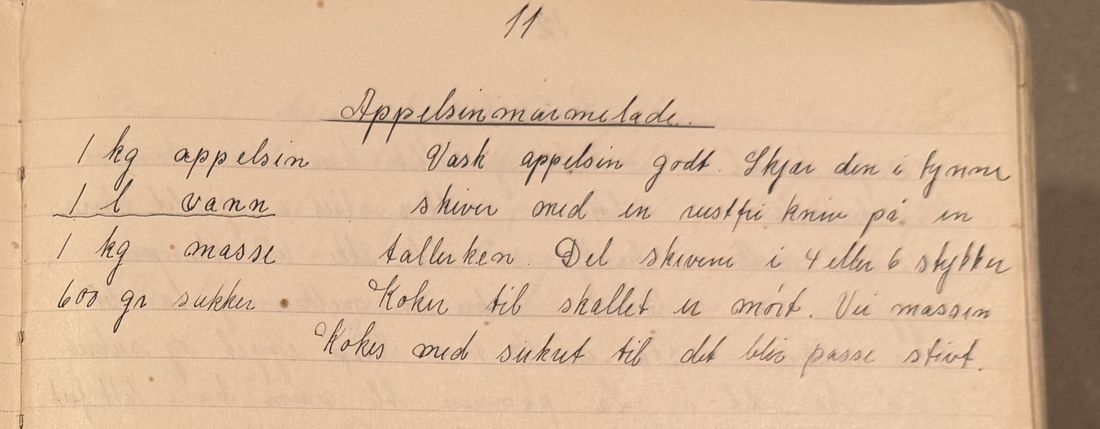 11
Appelsinmarmelade.
1 kg appelsin Vask appelsin godt. Skjær den i tynne
1 l vann skiver med en rustfri kniv på en
1 kg masse tallerken. Del skivene i 4 eller 6 stykker
600 gr sukker Koker til skallet er mørt. Vei massen
Kokes med sukret til det blir passe stivt.